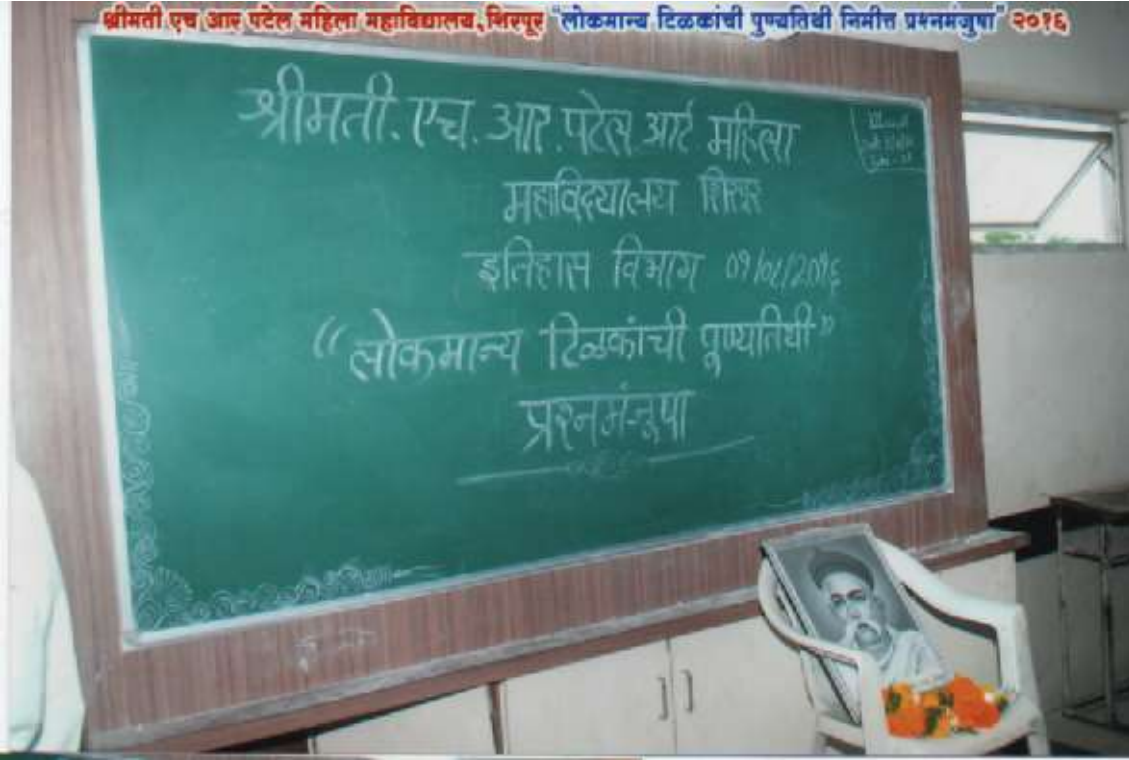 श्रीमती एच आर पटेल महिला महाविद्यालय, शिरपूर "लोकमान्य टिळकांची पुण्यतिथी निमीत्त प्रश्नमंजुषा" २०१६
श्रीमती. एच. आर. पटेल आर्ट महिला
महाविद्यालय शिरपूर
इतिहास विभाग ०१/०८/२०१६
"लोकमान्य टिळकांची पूण्यतिथी"
प्रश्नमंजूषा